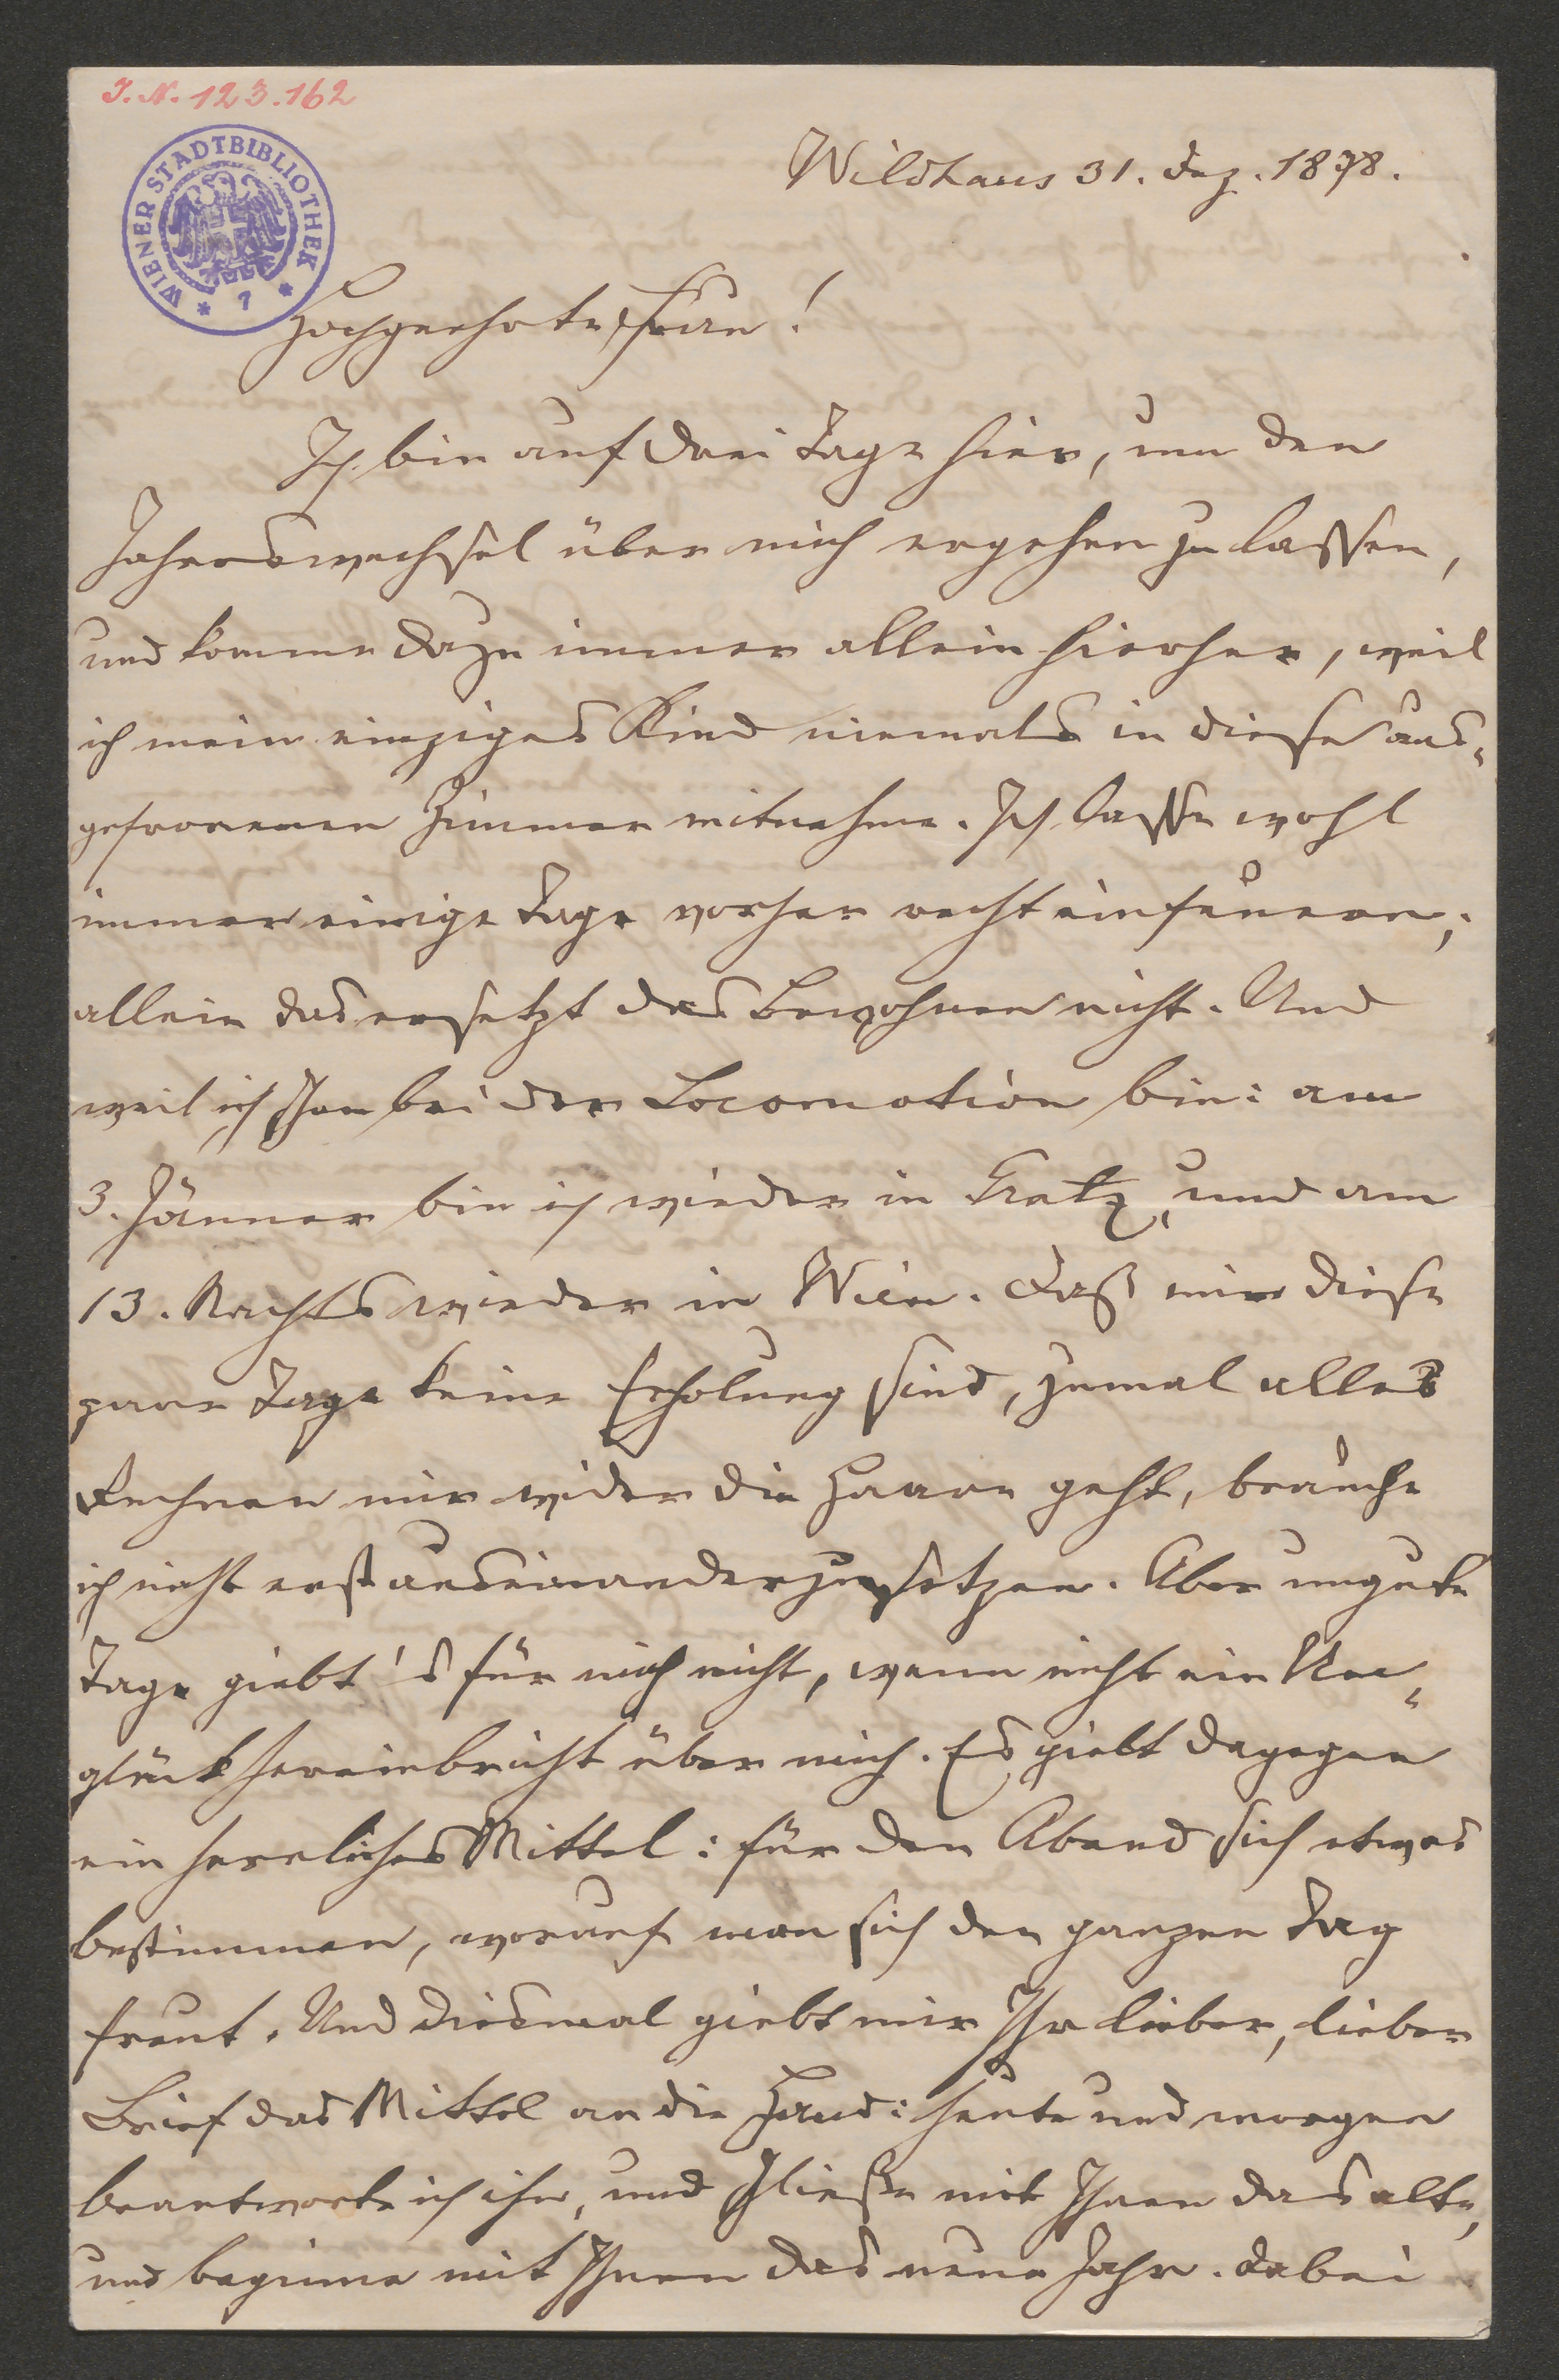 J.N. 123.162
WIENER STADTBIBLIOTHEK
* 7 *
Wildhaus 31. Dez. 1878.
Hochgeehrte Frau!
Ich bin auf drei Tage hier, um den
Jahreswechsel über mich ergehen zu lassen,
und komme dazu immer allein hierher, weil
ich mein einziges Kind niemals in diese aus-
gefrorenen Zimmer mitnehme. Ich lasse wohl
immer einige Tage vorher recht einfeuern;
allein das ersetzt das Bewohnen nicht. Und
weil ich schon bei der Locomotion bin: am
3. Jänner bin ich wieder in Gratz, und am
13. Nachts wieder in Wien. Daß mir diese
paar Tage keine Erholung sind, zumal alles
Rechnen mir wider die Haare geht, brauche
ich nicht erst auseinanderzusetzen. Aber ungute
Tage giebt's für mich nicht, wenn nicht ein Un-
glück hereinbricht über mich. Es giebt dagegen
ein herrliches Mittel: für den Abend sich etwas
bestimmen, worauf man sich den ganzen Tag
freut. Und diesmal giebt mir Ihr lieber, lieber
Brief das Mittel an die Hand: heute und morgen
beantworte ich ihn, und schließe mit Ihnen das alte,
und beginne mit Ihnen das neue Jahr. Dabei